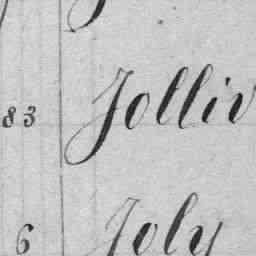 83 Jolliv
6 Joly